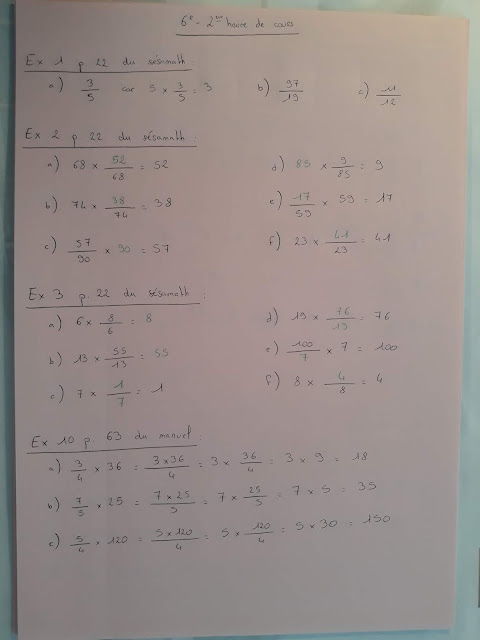 6e - 2ème heure de cours
Ex 1 p 22 du sésamath :
a) 3/5 car 5 × 3/5 = 3 b) 97/19 c) 11/12
Ex 2 p 22 du sésamath :
a) 68 × 52/68 = 52 d) 85 × 9/85 = 9
b) 74 × 38/74 = 38 e) 17/59 × 59 = 17
c) 57/90 × 90 = 57 f) 23 × 41/23 = 41
Ex 3 p. 22 du sésamath :
a) 6 × 8/6 = 8 d) 19 × 76/19 = 76
b) 13 × 55/13 = 55 e) 100/7 × 7 = 100
c) 7 × 1/7 = 1 f) 8 × 4/8 = 4
Ex 10 p. 63 du manuel :
a) 3/4 × 36 = 3×36/4 = 3 × 36/4 = 3 × 9 = 18
b) 7/5 × 25 = 7×25/5 = 7 × 25/5 = 7 × 5 = 35
c) 5/4 × 120 = 5×120/4 = 5 × 120/4 = 5 × 30 = 150